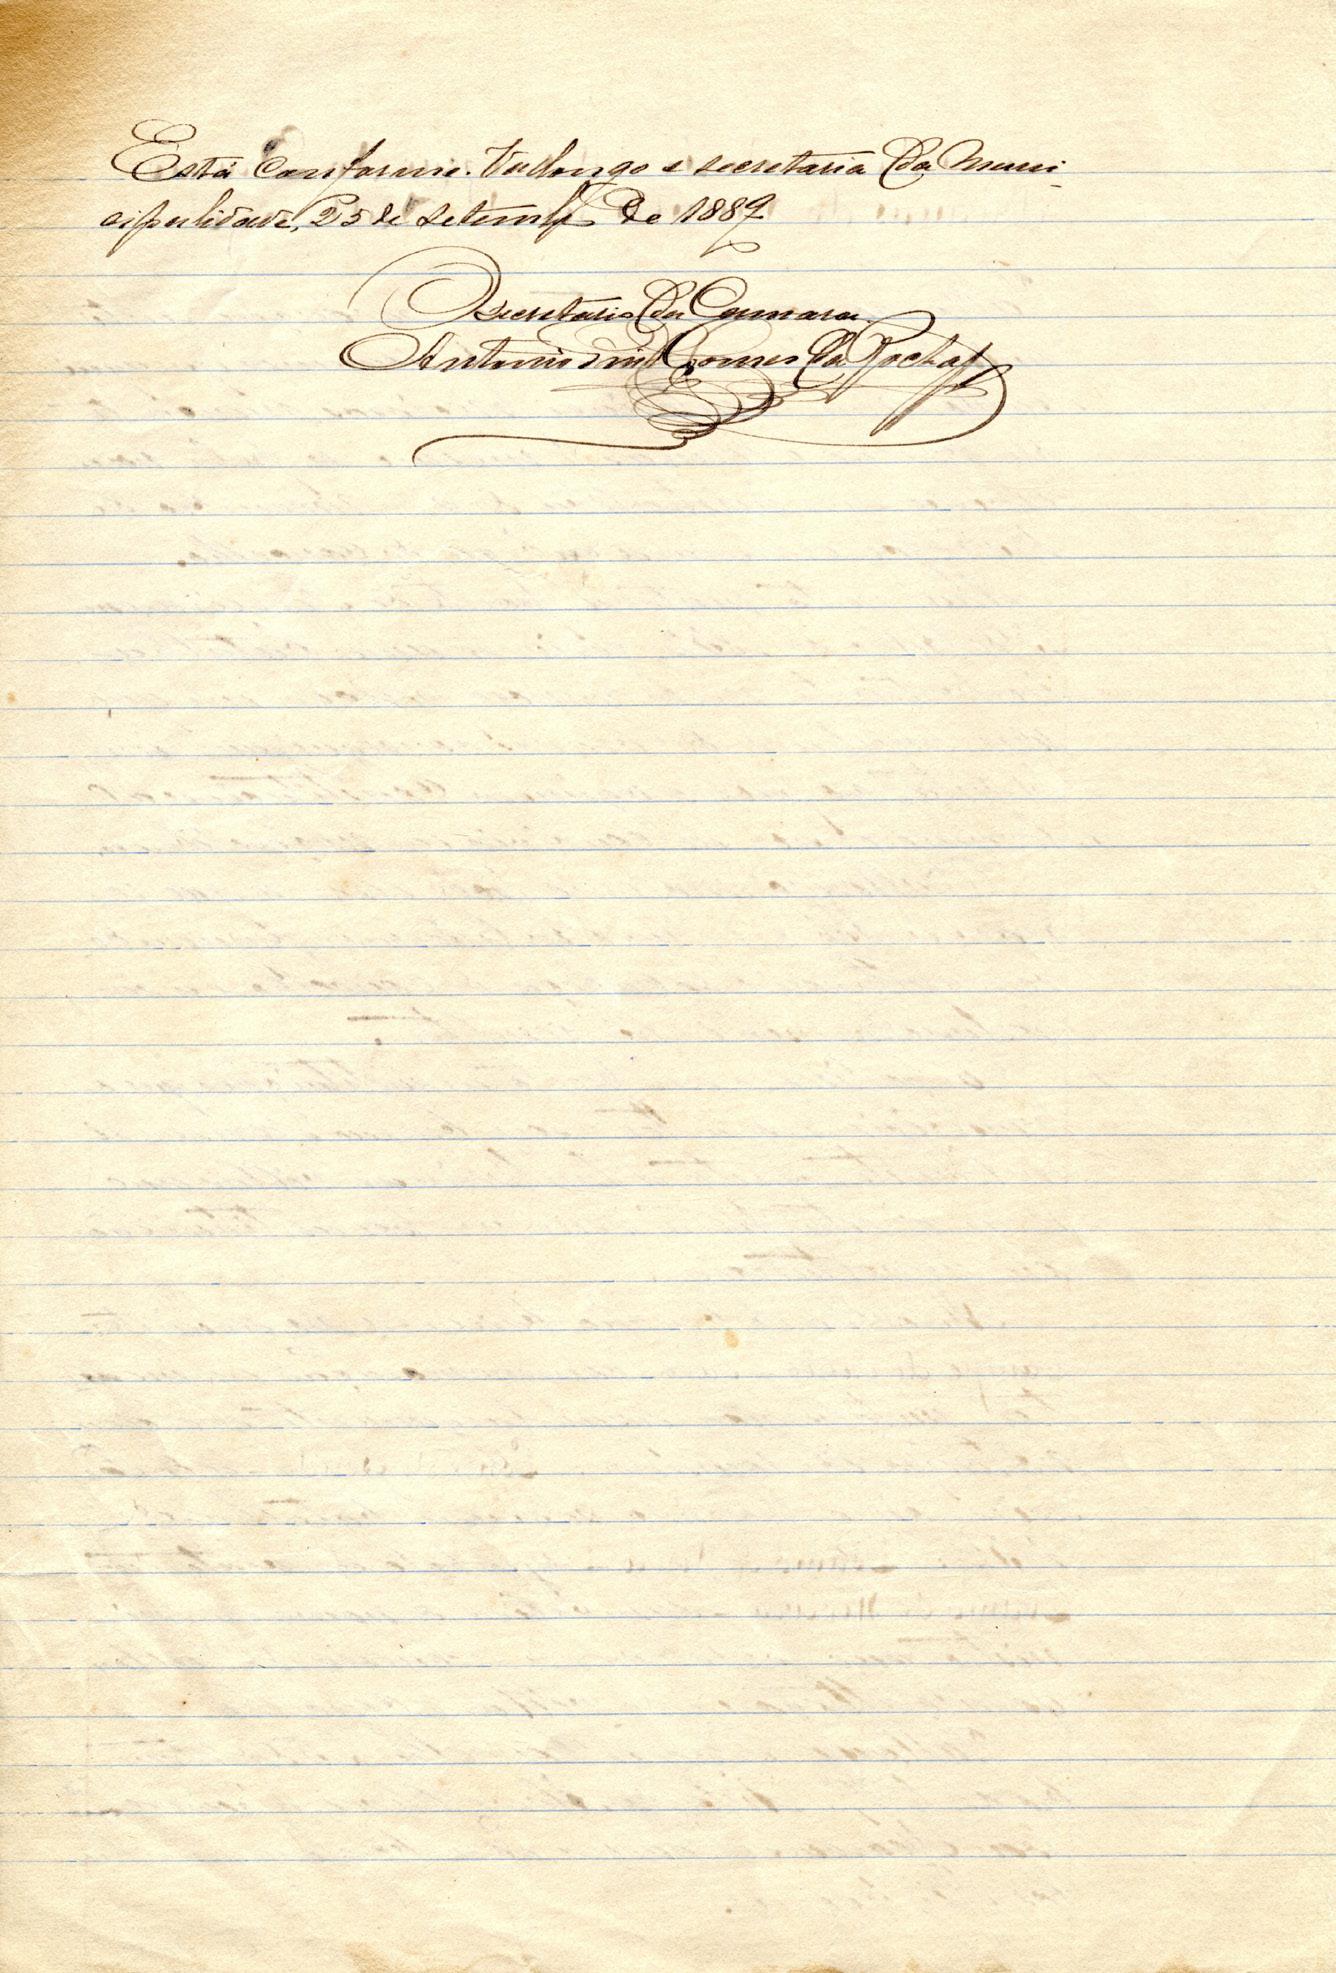 Está conforme. Vallongo e secretaria da Muni-
cipalidade, 25 de setembro de 1889
O secretario da Camara
Antonio Gomes da Rocha